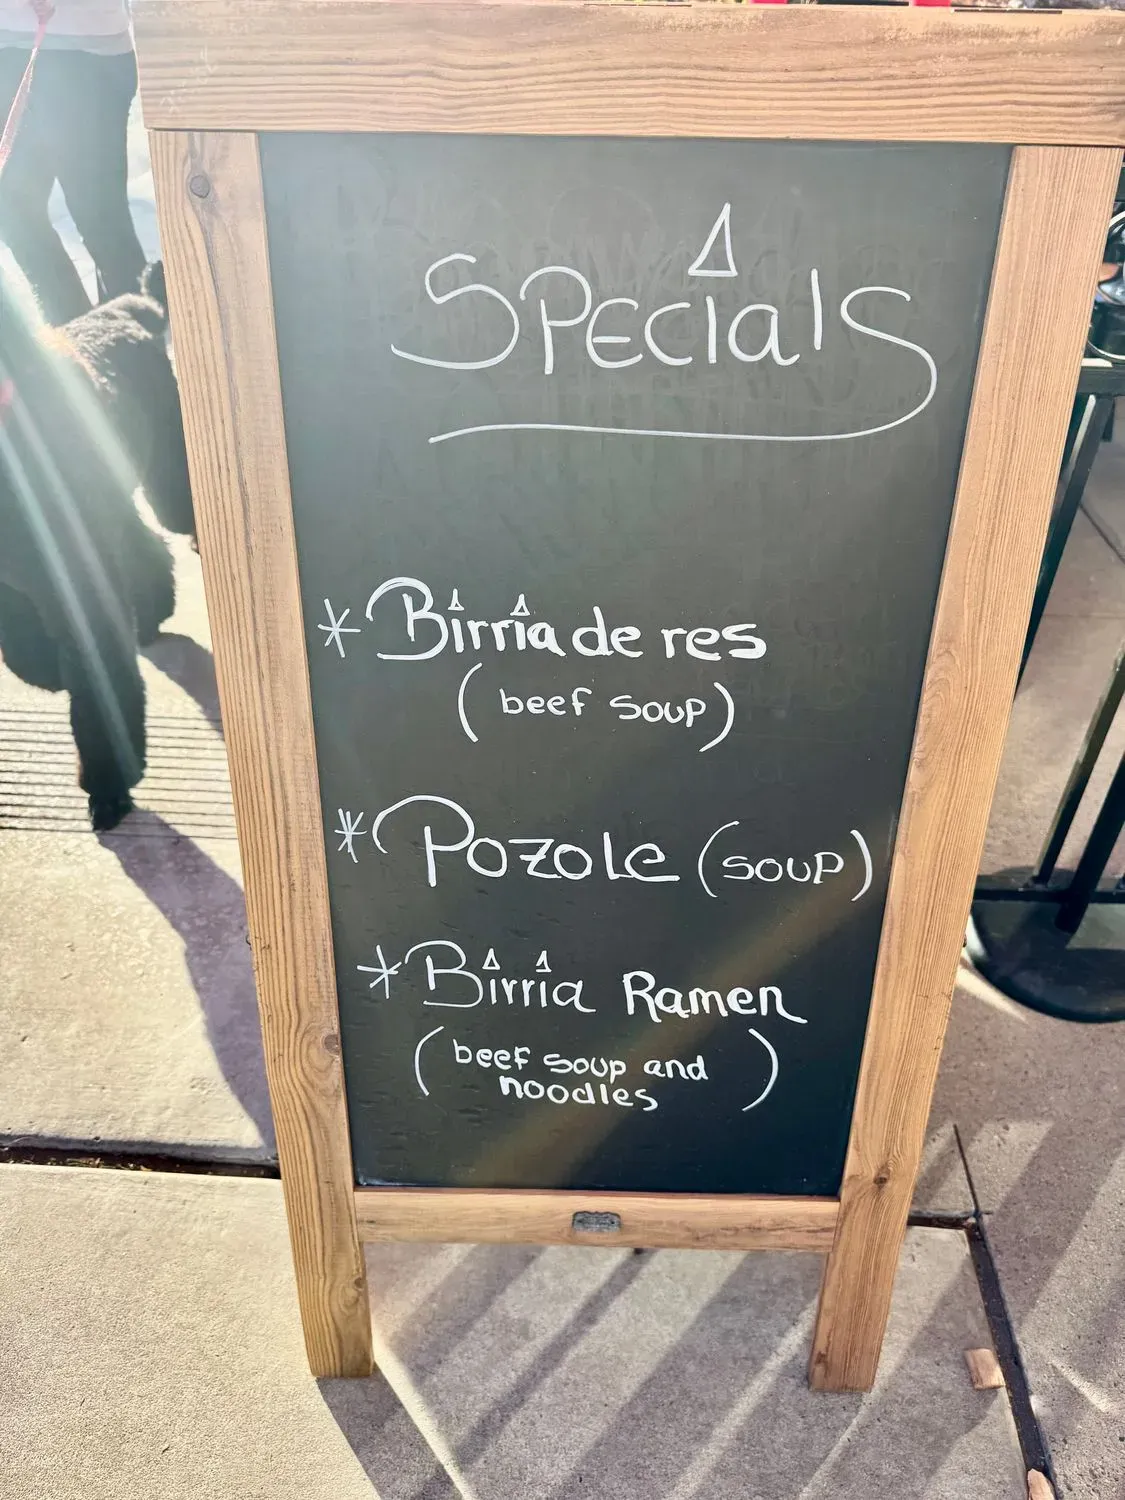 Specials
* Birria de res
(beef soup)
* Pozole (soup)
* Birria Ramen
(beef soup and
noodles)